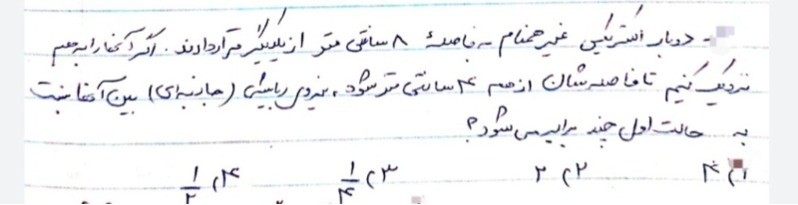 - دو بار الکتریکی غیر همنام به فاصلهٔ ۸ سانتی متر از یکدیگر قرار دارند. اگر آنها را به هم
نزدیک کنیم تا فاصله شان از هم ۴ سانتی متر شود، نیروی ربایشی (جاذبه ای) بین آنها نسبت
به حالت اول چند برابر می شود؟
۱) ۴ ۲) ۲ ۳) ۱/۴ ۴) ۱/۲